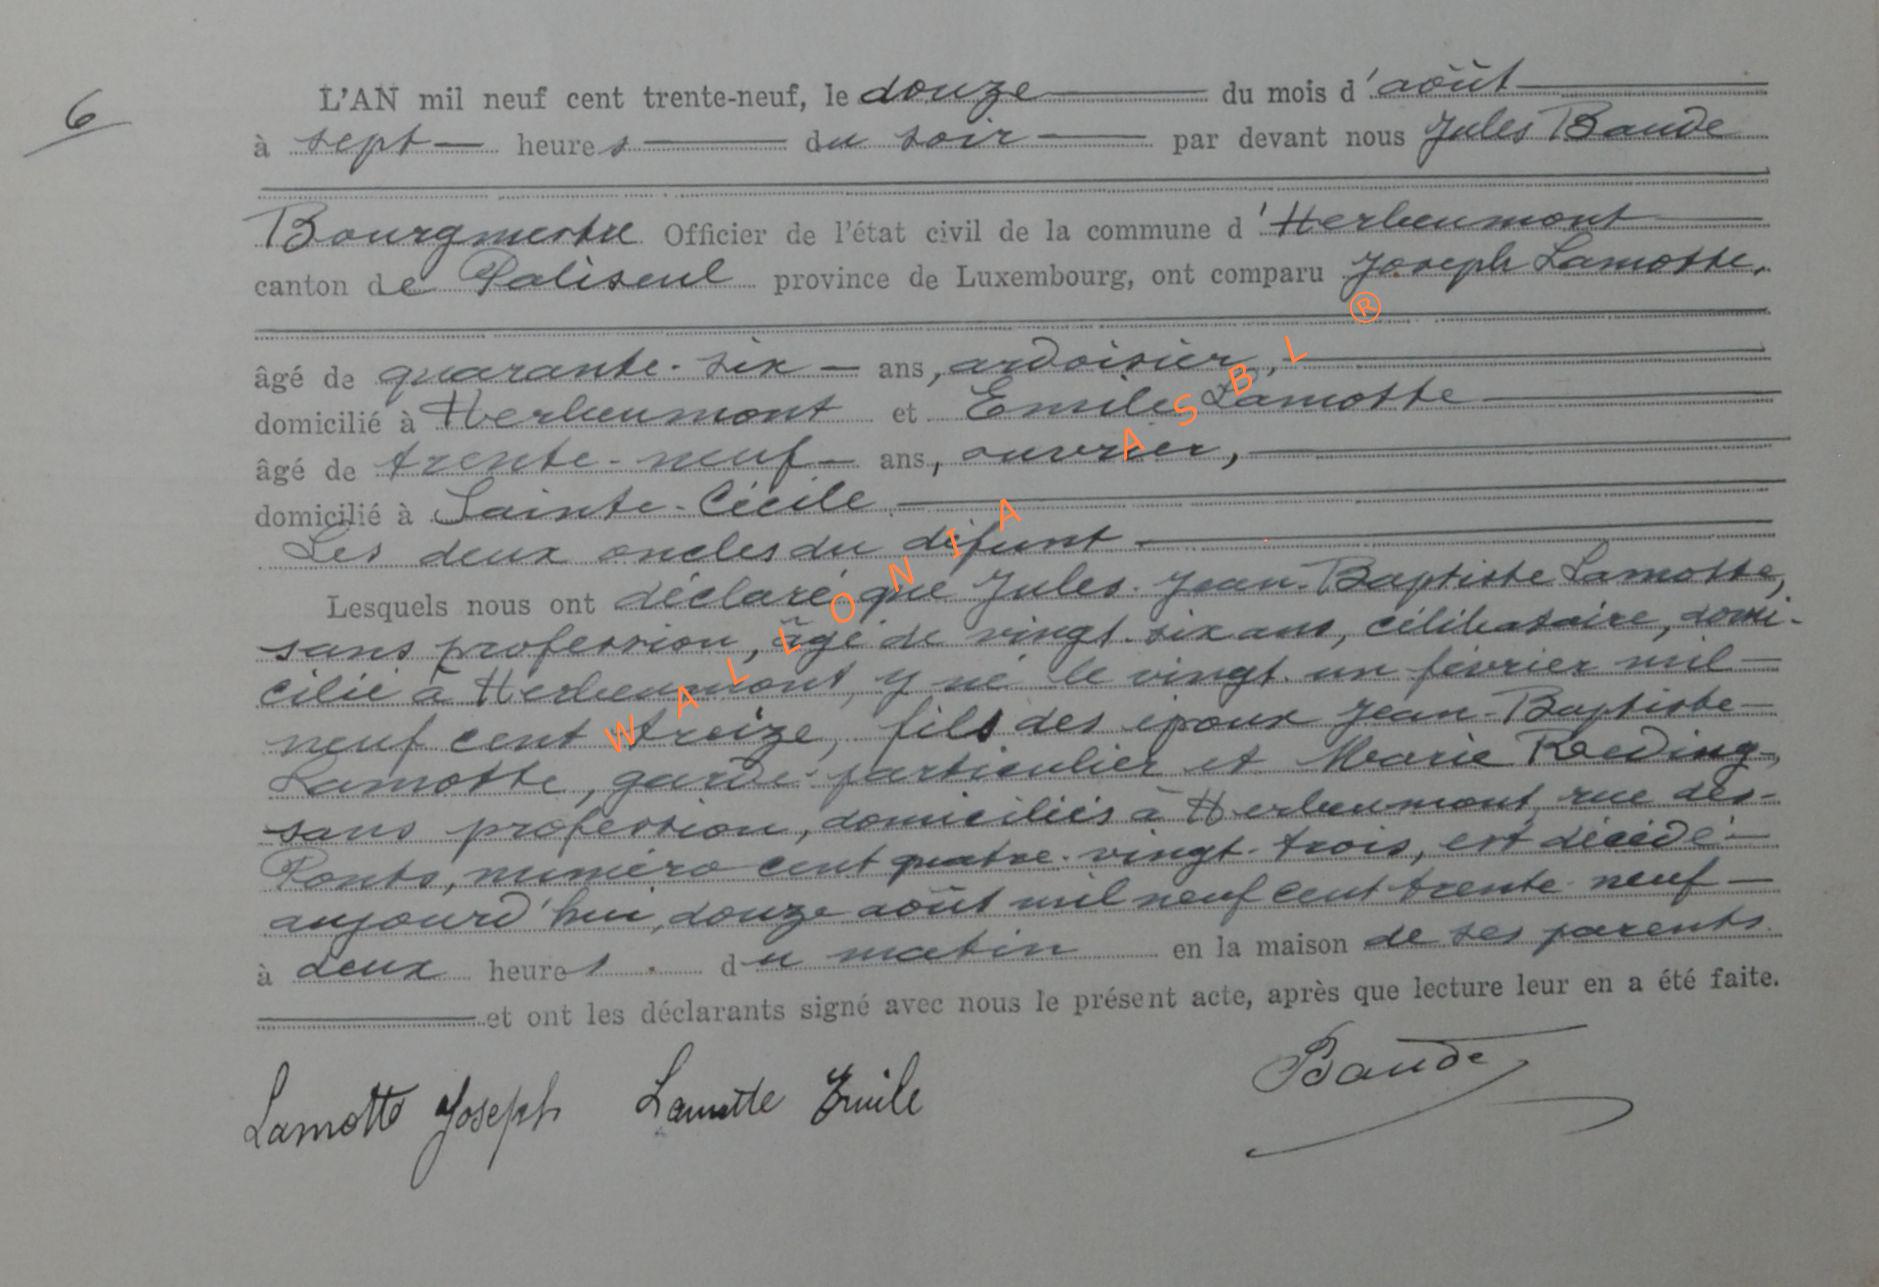 6
L'AN mil neuf cent trente-neuf, le douze du mois d'août
à sept heures du soir par devant nous Jules Baude
Bourgmestre Officier de l'état civil de la commune d'Herbeumont
canton de Paliseul province de Luxembourg, ont comparu Joseph Lamotte,
âgé de quarante-six ans, ardoisier,
domicilié à Herbeumont et Emile Lamotte
âgé de trente-neuf ans, ouvrier,
domicilié à Sainte-Cécile
Les deux oncles du défunt
Lesquels nous ont déclaré que Jules-Jean-Baptiste Lamotte,
sans profession, âgé de vingt-six ans, célibataire, domi-
cilié à Herbeumont, y né le vingt-un février mil
neuf cent treize, fils des époux Jean-Baptiste
Lamotte, garde-particulier et Marie Roeding,
sans profession, domiciliés à Herbeumont, rue des
Ponts, numéro cent quatre-vingt-trois, est décédé
aujourd'hui, douze août mil neuf cent trente-neuf
à deux heures du matin en la maison de ses parents
et ont les déclarants signé avec nous le présent acte, après que lecture leur en a été faite.
Lamotte Joseph Lamotte Emile Baude
WALLONIA ASBL ®